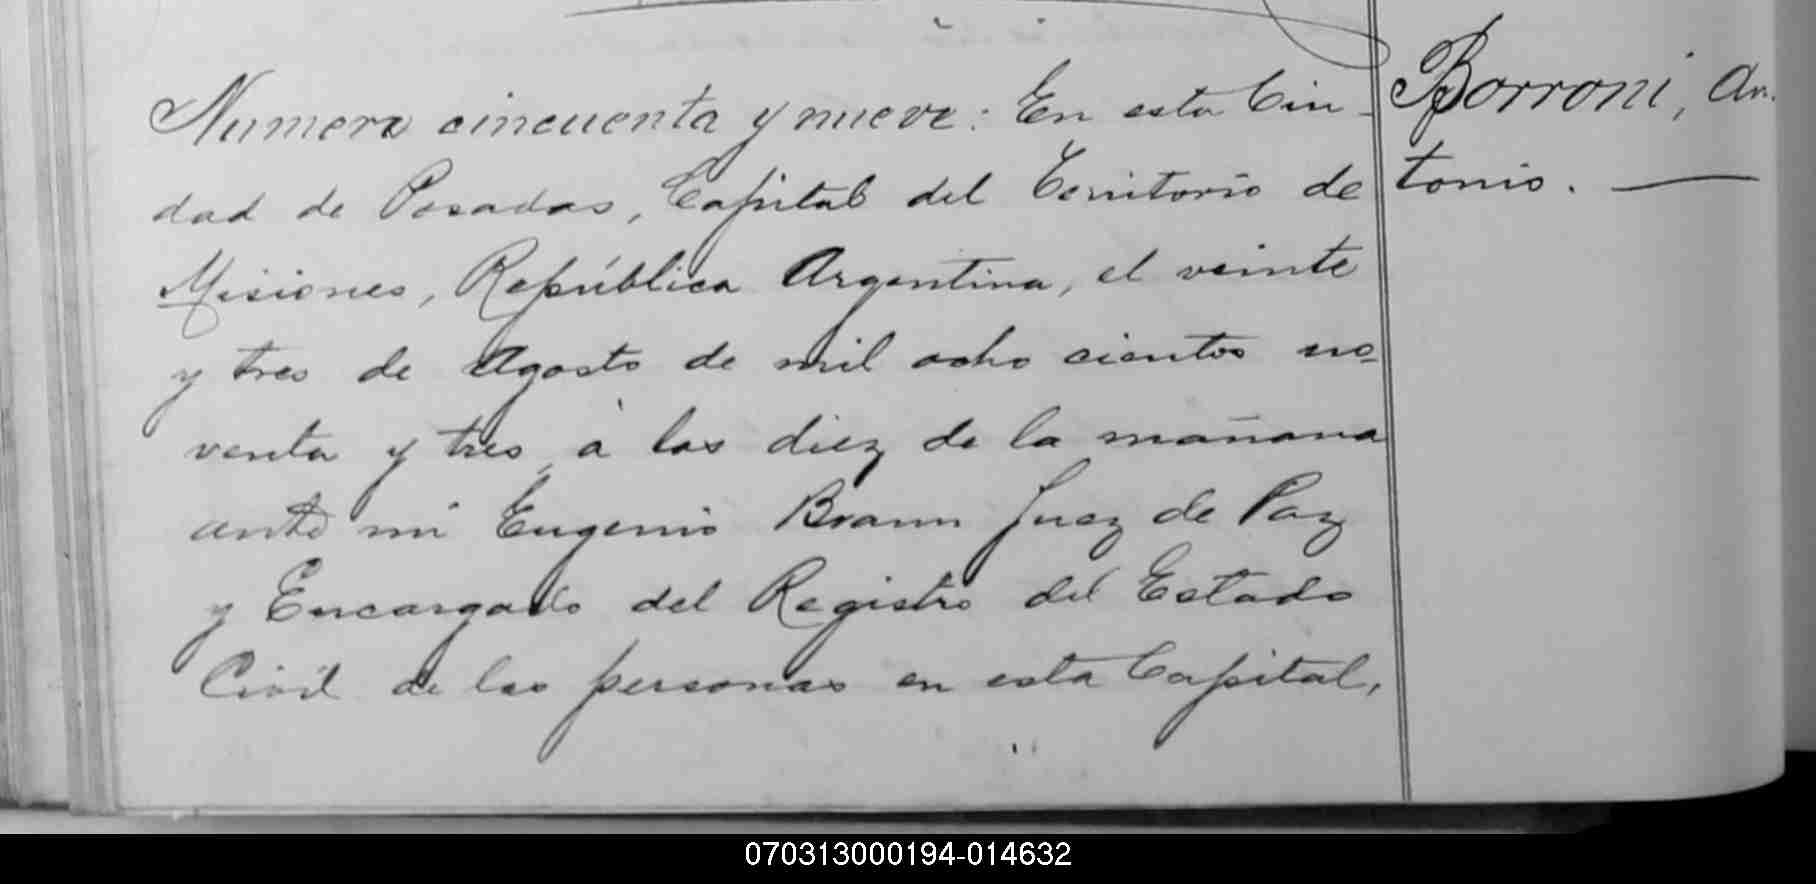 Numero cincuenta y nueve: En esta Ciu-
dad de Posadas, Capital del Territorio de
Misiones, República Argentina, el veinte
y tres de Agosto de mil ocho cientos no-
venta y tres, á las diez de la mañana
ante mi Eugenio Braun Juez de Paz
y Encargado del Registro del Estado
Civil de las personas en esta Capital,
Borroni, An-
tonio. —
070313000194-014632